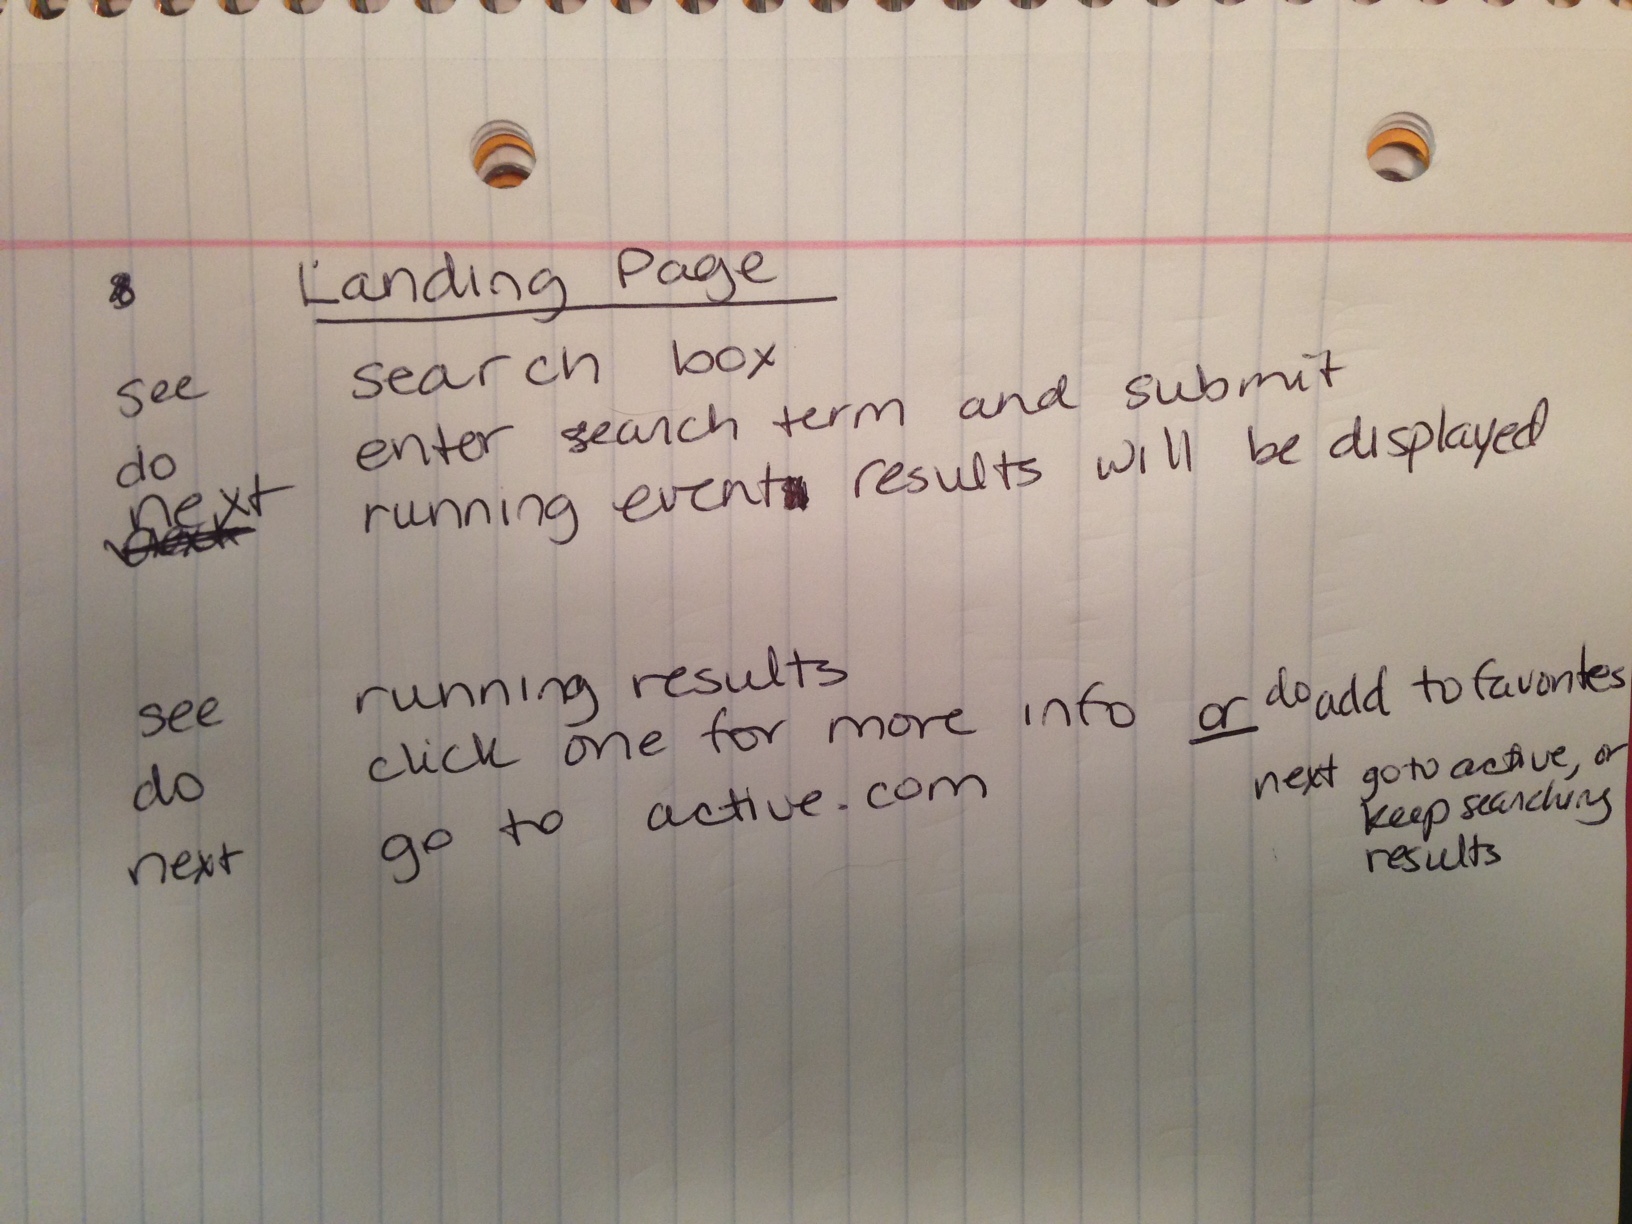 Landing Page
see search box
do enter search term and submit
next running event results will be displayed
see running results
do click one for more info or do add to favorites
next go to active.com
next go to active, or
keep searching
results